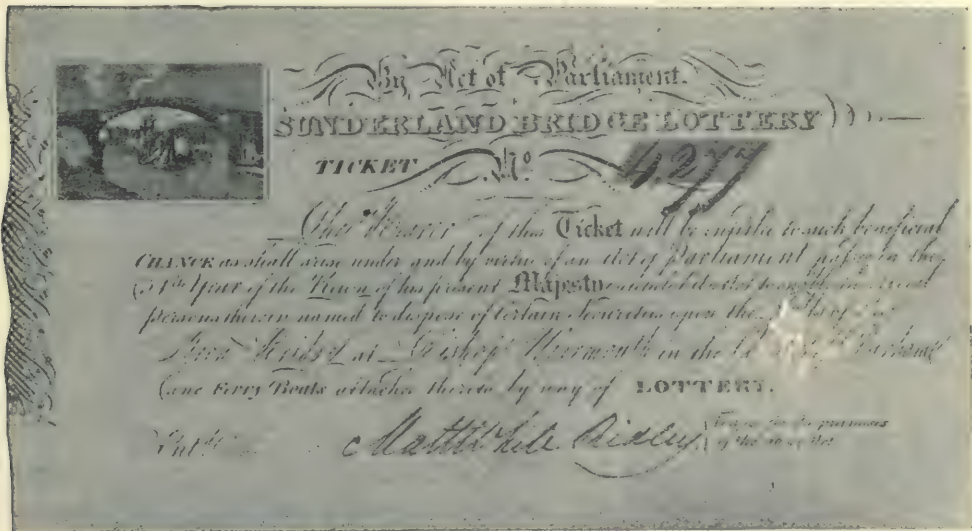 By Act of Parliament.
SUNDERLAND BRIDGE LOTTERY
TICKET No. 4,277
The Bearer of this Ticket will be entitled to such beneficial
CHANCE as shall arise under and by virtue of an Act of Parliament passed in the
Year of the Reign of his present Majesty
persons therein named to dispose of certain Securities upon the Tolls of the
Iron Bridge at Bishop Wearmouth in the
and Ferry Boats attached thereto by way of LOTTERY.
Matt White Ridley